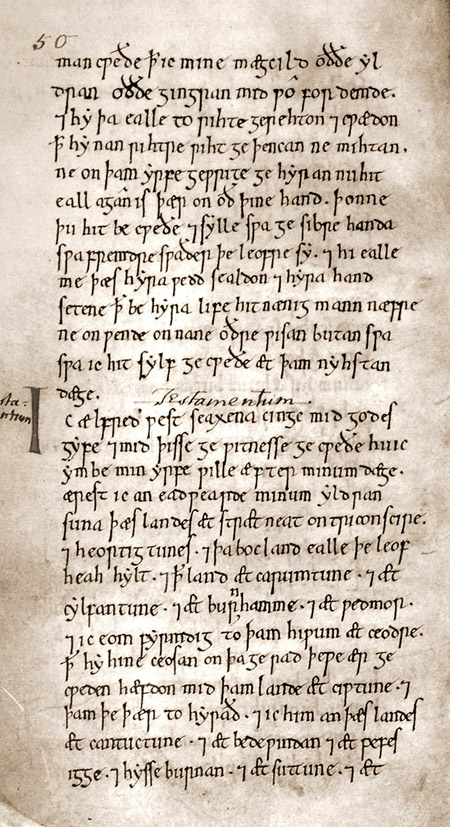 56
man cƿæðe þ̄ ic mine mægcild oððe yl
dran oððe gingran mid ƿó fordemde.
⁊ hy þa ealle to rihte gerehton ⁊ cƿædon
þ̄ hy nan rihtre riht ge þencan ne mihtan.
ne on þam yrfe geƿrite ge hyran nu hit
eall agán is þær on oð þine hand. þonne
þu hit be cƿeðe ⁊ sylle sƿa ge sibre handa
sƿa fremdre sƿaðer þe leofre sy. ⁊ hi ealle
me þæs hyra ƿedd sealdon ⁊ hyra hand
setene þ̄ be hyra life hit nænig mann næfre
ne on ƿende on nane oðre ƿisan butan sƿa
sƿa ic hit sylf ge cƿeðe æt þam nyhstan
dæge. Testamentum.
Ic ælfred ƿest seaxena cinge mid godes
gyfe ⁊ mid þisse ge ƿitnesse ge cƿeðe hu ic
ymbe min yrfe ƿille æfter minum dæge.
ærest ic an eadƿearde minum yldran
suna þæs landes æt strætneat on triconscire.
⁊ heortigtunes. ⁊ þa bocland ealle þe leof
heah hylt. ⁊ þ̄ land æt carumtune. ⁊ æt
cylfantune. ⁊ æt burnhamme. ⁊ æt ƿedmor.
⁊ ic eom fyrmdig to þam hiƿum æt ceodre.
þ̄ hy hine ceosan on þa ge rad þe ƿe ær ge
cƿeden hæfdon mid þam lande æt ciƿtune. ⁊
þam þe þær to hyrað. ⁊ ic him an þæs landes
æt cantuctune. ⁊ æt bedeƿindan ⁊ æt ƿefes
igge. ⁊ hysse burnan. ⁊ æt suttune. ⁊ æt